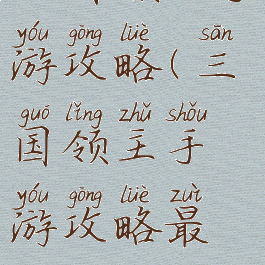 yóu gōng lüè sān
游攻略(三
guó lǐng zhǔ shǒu
国领主手
yóu gōng lüè zuì
游攻略最